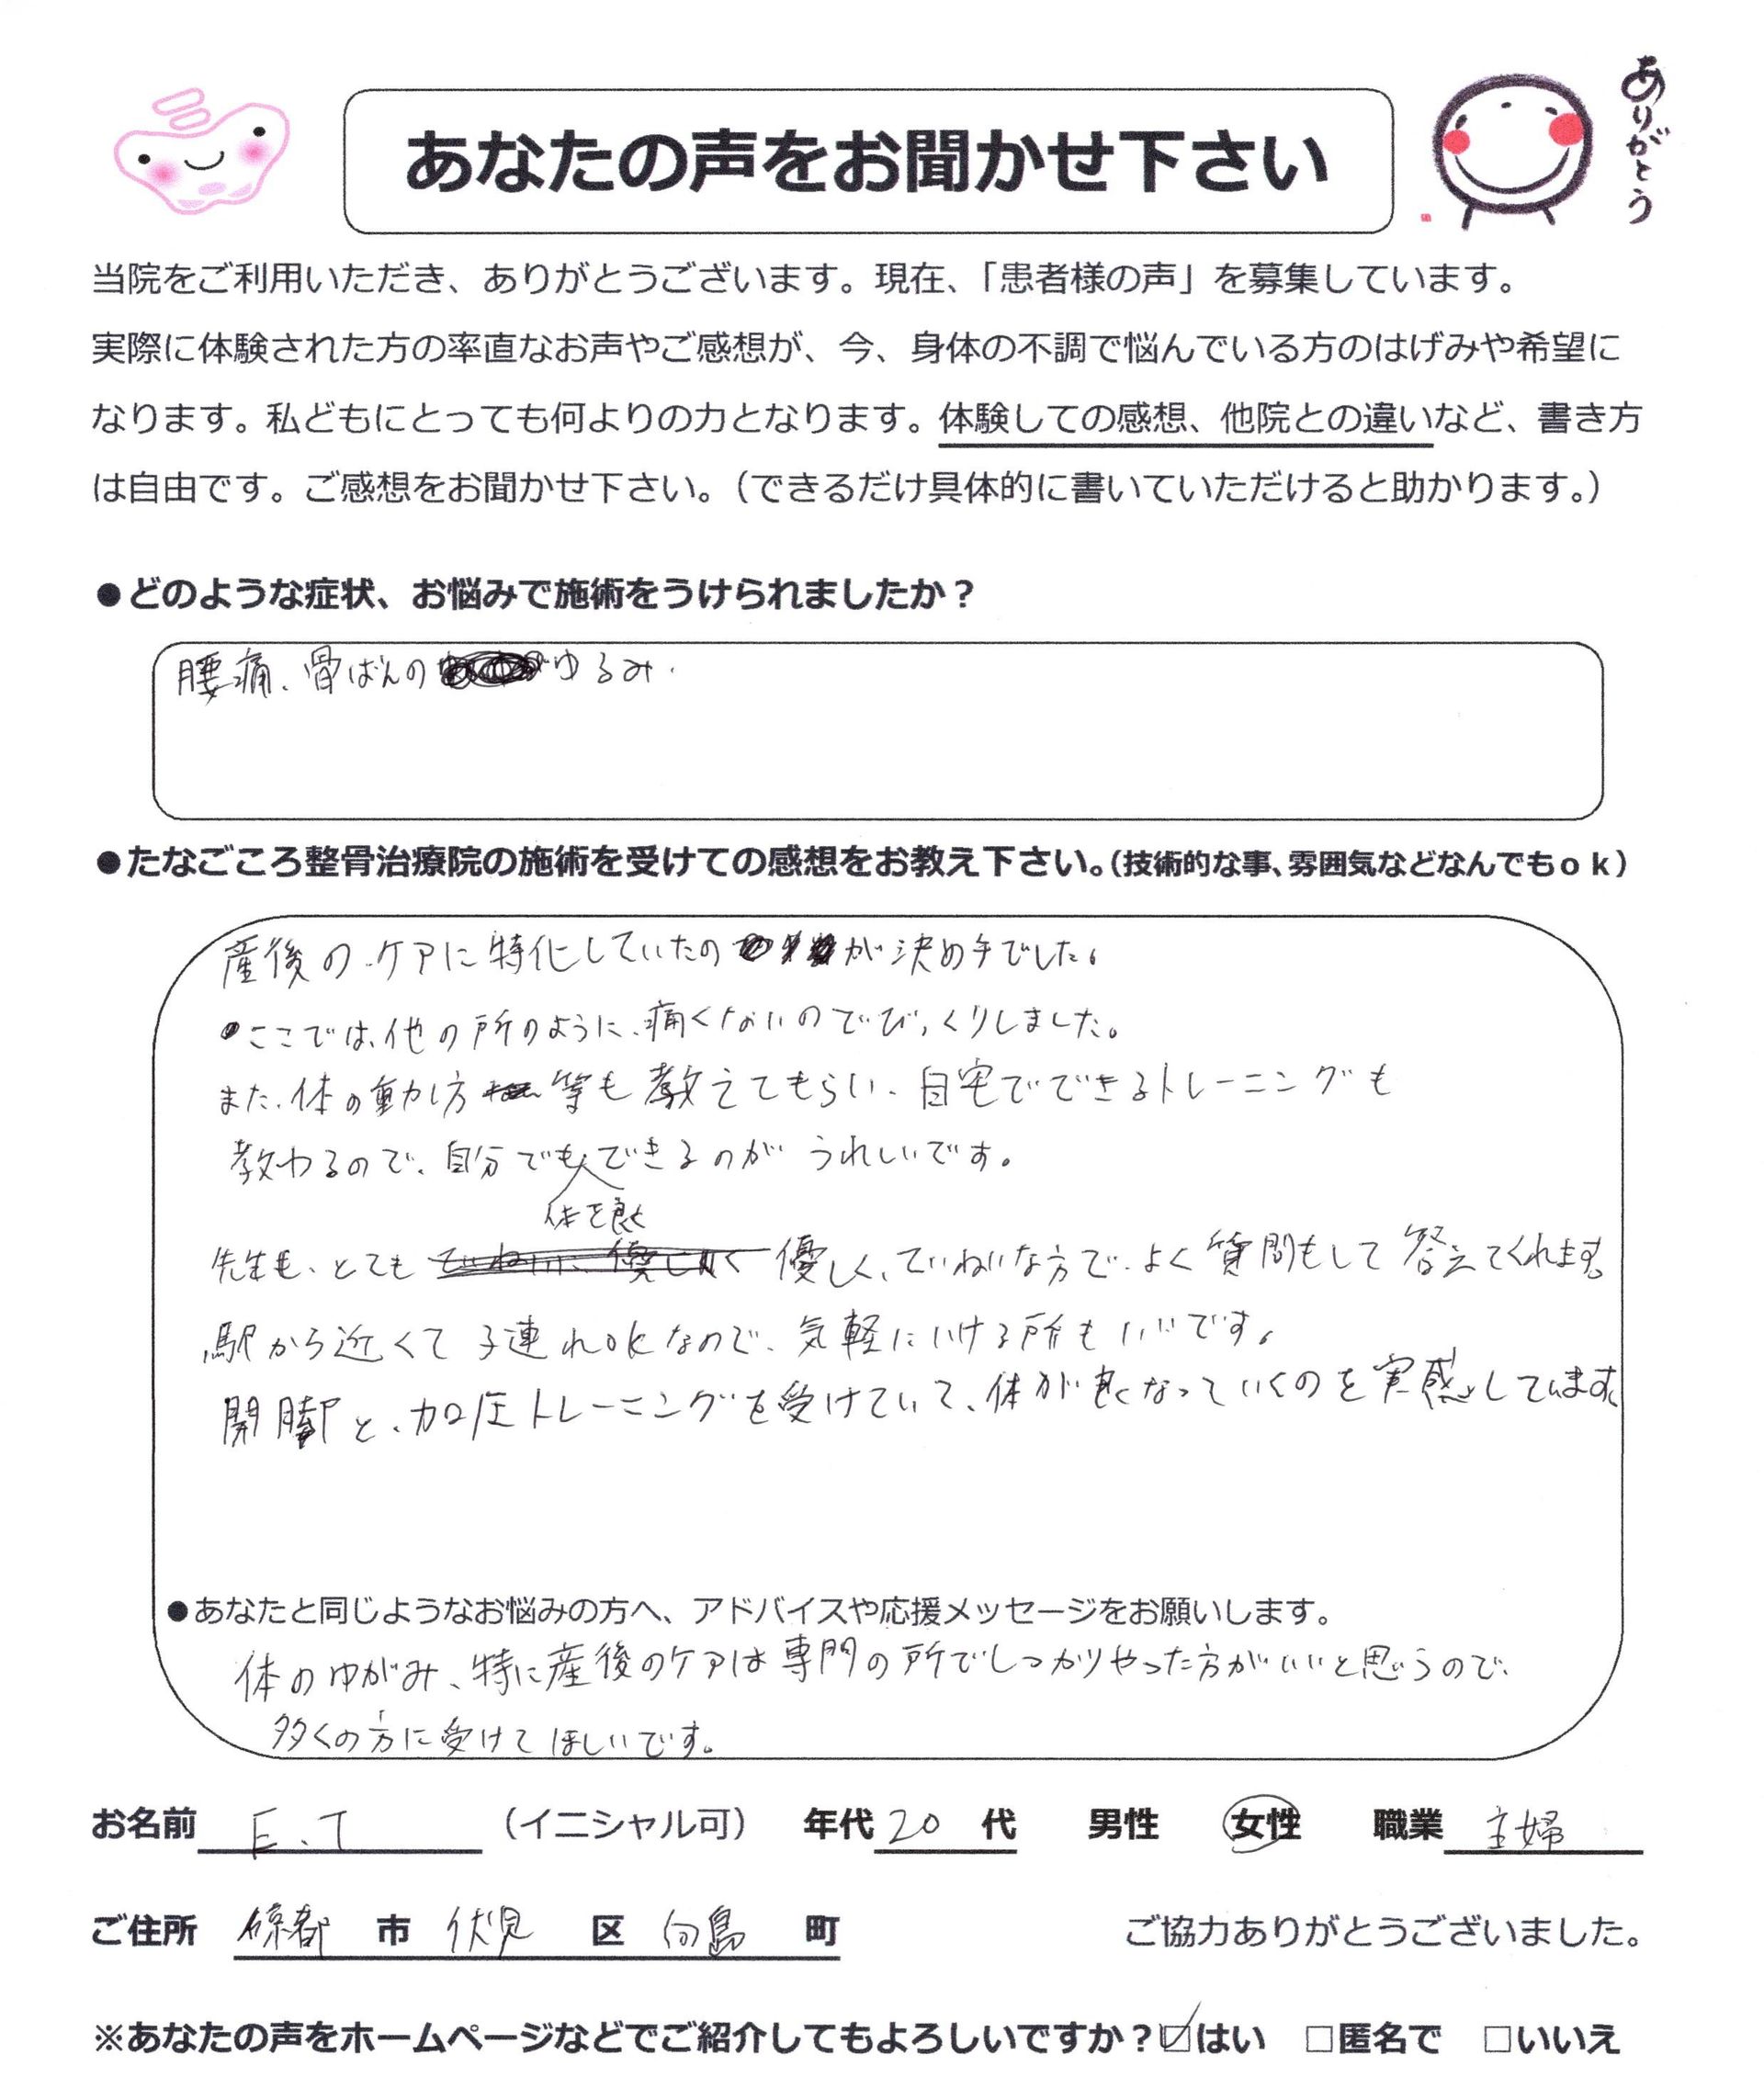 あなたの声をお聞かせ下さい
ありがとう
当院をご利用いただき、ありがとうございます。現在、「患者様の声」を募集しています。
実際に体験された方の率直なお声やご感想が、今、身体の不調で悩んでいる方のはげみや希望に
なります。私どもにとっても何よりの力となります。体験しての感想、他院との違いなど、書き方
は自由です。ご感想をお聞かせ下さい。（できるだけ具体的に書いていただけると助かります。）
●どのような症状、お悩みで施術をうけられましたか？
腰痛、骨ばんのゆるみ.
●たなごころ整骨治療院の施術を受けての感想をお教え下さい。（技術的な事、雰囲気などなんでもｏｋ）
産後のケアに特化していたのが決め手でした。
ここでは、他の所のように、痛くないのでびっくりしました。
また、体の動かし方等も教えてもらい、自宅でできるトレーニングも
教わるので、自分でもできるのがうれしいです。
体を良く
先生も、とても優しく、ていねいな方で、よく質問もして答えてくれます。
駅から近くて子連れokなので、気軽にいける所もいいです。
開脚と、加圧トレーニングを受けていて、体が良くなっていくのを実感しています。
●あなたと同じようなお悩みの方へ、アドバイスや応援メッセージをお願いします。
体のゆがみ、特に産後のケアは専門の所でしっかりやった方がいいと思うので、
多くの方に受けてほしいです。
お名前 E.T （イニシャル可） 年代 20 代 男性 女性 職業 主婦
ご住所 京都 市 伏見 区 向島 町 ご協力ありがとうございました。
※あなたの声をホームページなどでご紹介してもよろしいですか？☑はい □匿名で □いいえ